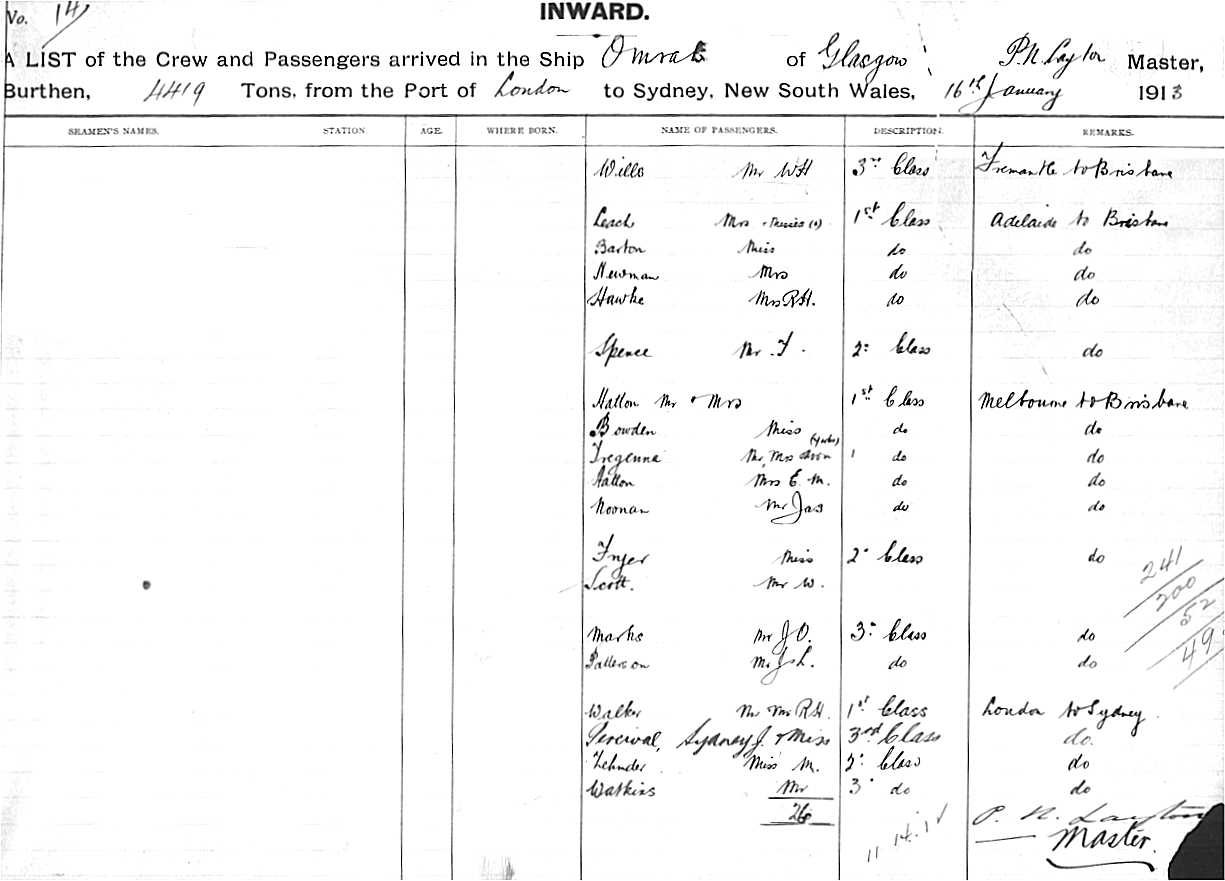 No. 14
INWARD.
A LIST of the Crew and Passengers arrived in the Ship Omrah of Glasgow, P. N. Layton Master,
Burthen, 4419 Tons, from the Port of London to Sydney, New South Wales, 16th January 1913
SEAMEN'S NAMES. STATION AGE. WHERE BORN. NAME OF PASSENGERS. DESCRIPTION. REMARKS.
Wills Mr WH 3rd Class Fremantle to Brisbane
Leach Mrs 1st Class Adelaide to Brisbane
Barton Miss do do
Newman Mrs do do
Hawke Mrs R.H. do do
Spence Mr F. 2: Class do
Hatton Mr & Mrs 1st Class Melbourne to Brisbane
Bowden Miss do do
Tregenna Mr, Mrs do do
Hatton Mrs E. M. do do
Noonan Mr Jas do do
Fryer Miss 2 Class do
Scott. Mr W.
241
200
52
49
Marks Mr J O. 3: Class do
Patterson Mr J. L. do do
Walker Mr Mrs R.H. 1st Class London to Sydney.
Percival, Sydney J. & Miss 3rd Class do.
Zehnder Miss M. 2: Class do
Watkins Mr 3 do do
26
11 14.1
P. N. Layton
Master.